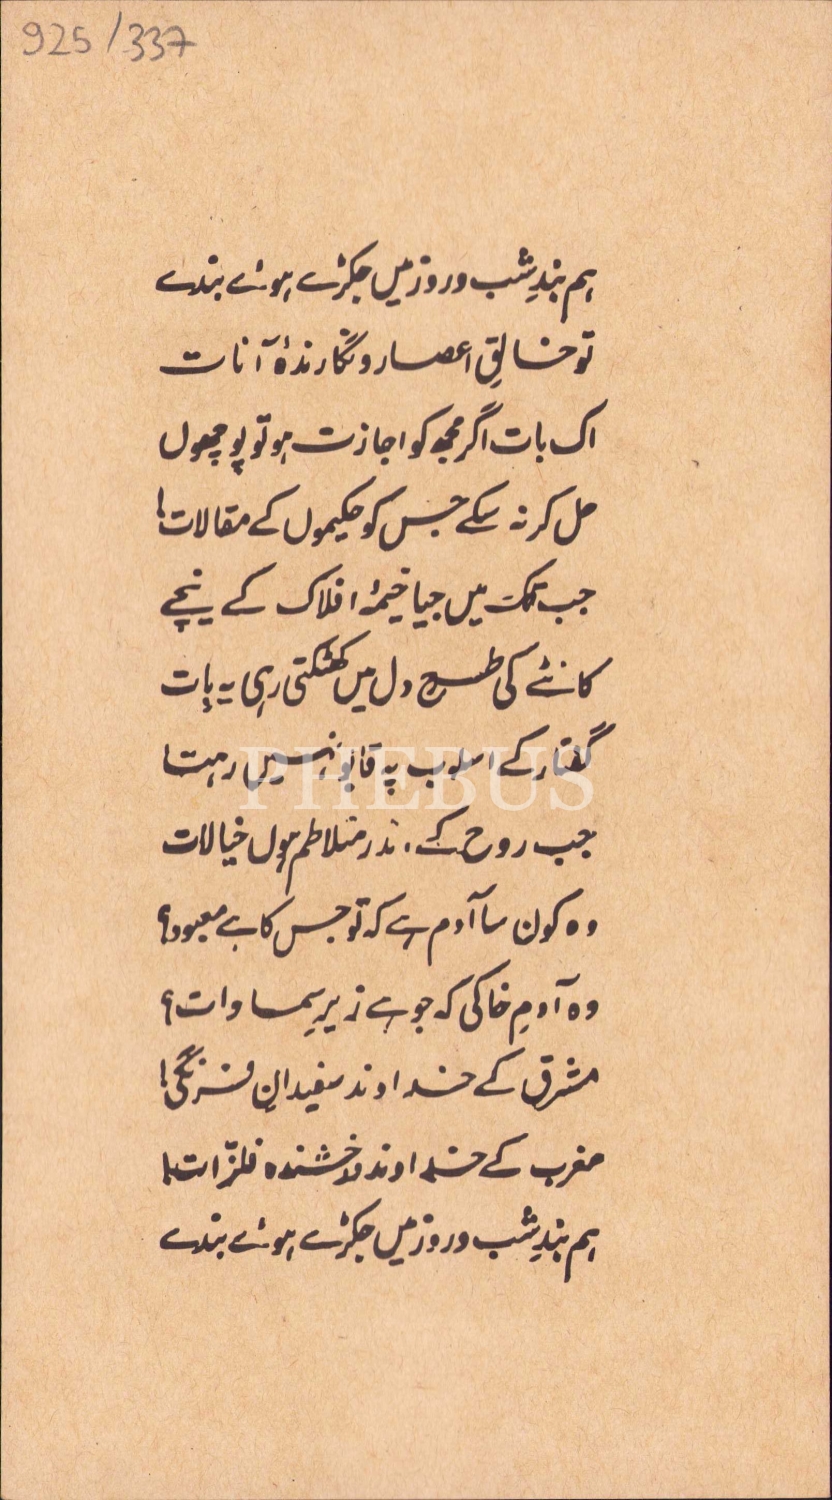 925/337
ہم بندِ شب و روز میں جکڑے ہوئے بندے
تو خالقِ اعصار و نگارندۂ آنات
اک بات اگر مجھ کو اجازت ہو تو پوچھوں
حل کر نہ سکے جس کو حکیموں کے مقالات!
جب تک میں جیا خیمۂ افلاک کے نیچے
کانٹے کی طرح دل میں کھٹکتی رہی یہ بات
گفتار کے اسلوب پہ قابو نہیں رہتا
PHEBUS
جب روح کے اندر متلاطم ہوں خیالات
وہ کون سا آدم ہے کہ تو جس کا ہے معبود؟
وہ آدمِ خاکی کہ جو ہے زیرِ سماوات؟
مشرق کے خداوند سفیدانِ فرنگی!
مغرب کے خداوند درخشندہ فلزّات!
ہم بندِ شب و روز میں جکڑے ہوئے بندے